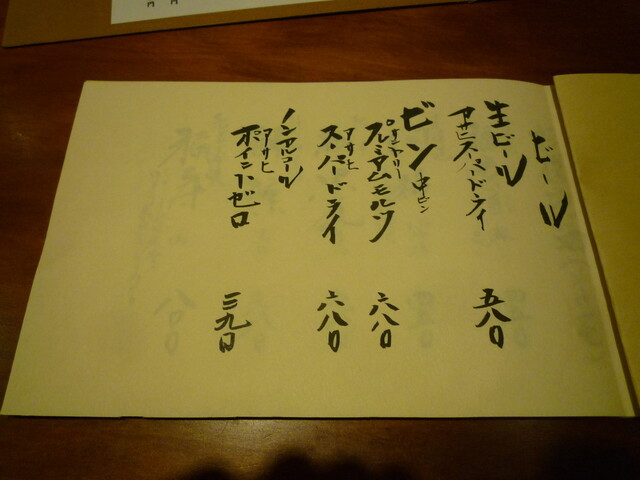 ビール
生ビール
アサヒスーパードライ 五八〇
ビン 中ビン
サントリー
プレミアムモルツ 六八〇
アサヒ
スーパードライ 六八〇
ノンアルコール
アサヒ
ポイントゼロ 三九〇
円 円